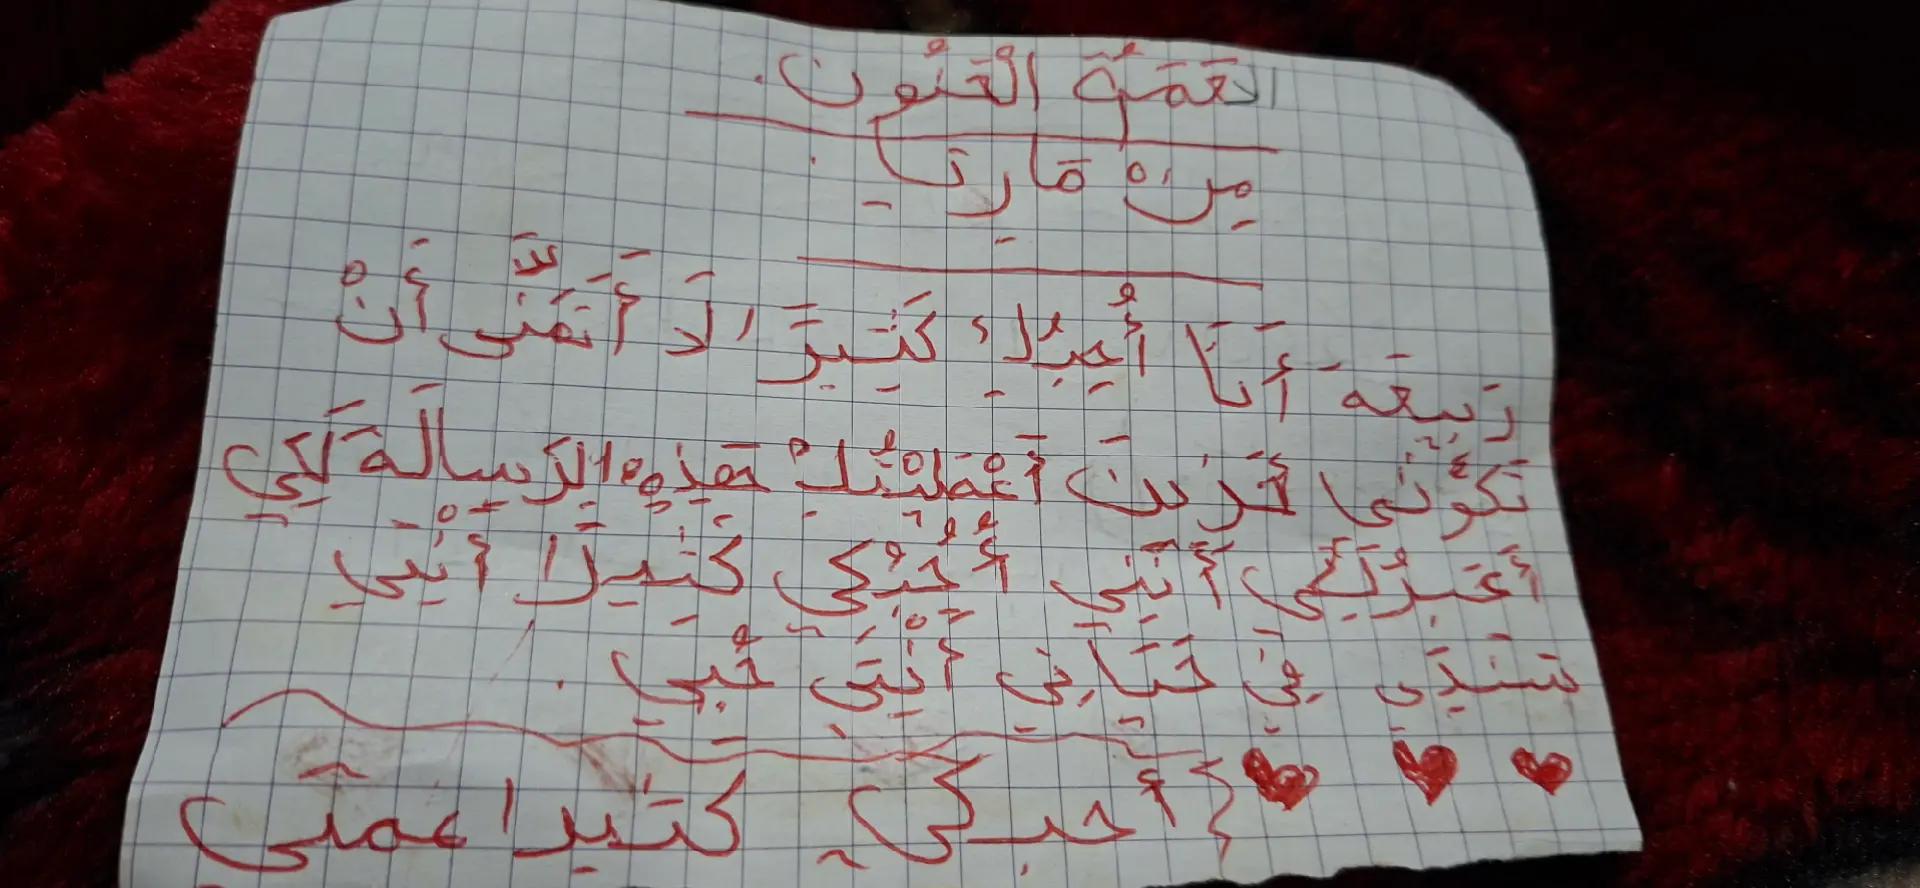 العَمَّةُ الْحَنُونْ.
مِنْ مَارِيَا.
رَبيعَة أَنَا أُحِبُكِ كَثِيرًَا لَا أَتَمَنَّى أَنْ
تَكُونِي حَزِينَ أَعْطَيْتُكِ هَذِهِ الرِسالَةَ لِكَيِ
أُعَبِرُلَكِي أَنَنِي أُحِبُكِي كَثِيرًا أَنْتِي
سَنَدِي فِي حَيَاتِي أَنْتِي حُبِي.
أحبكي كثيرا عمتي